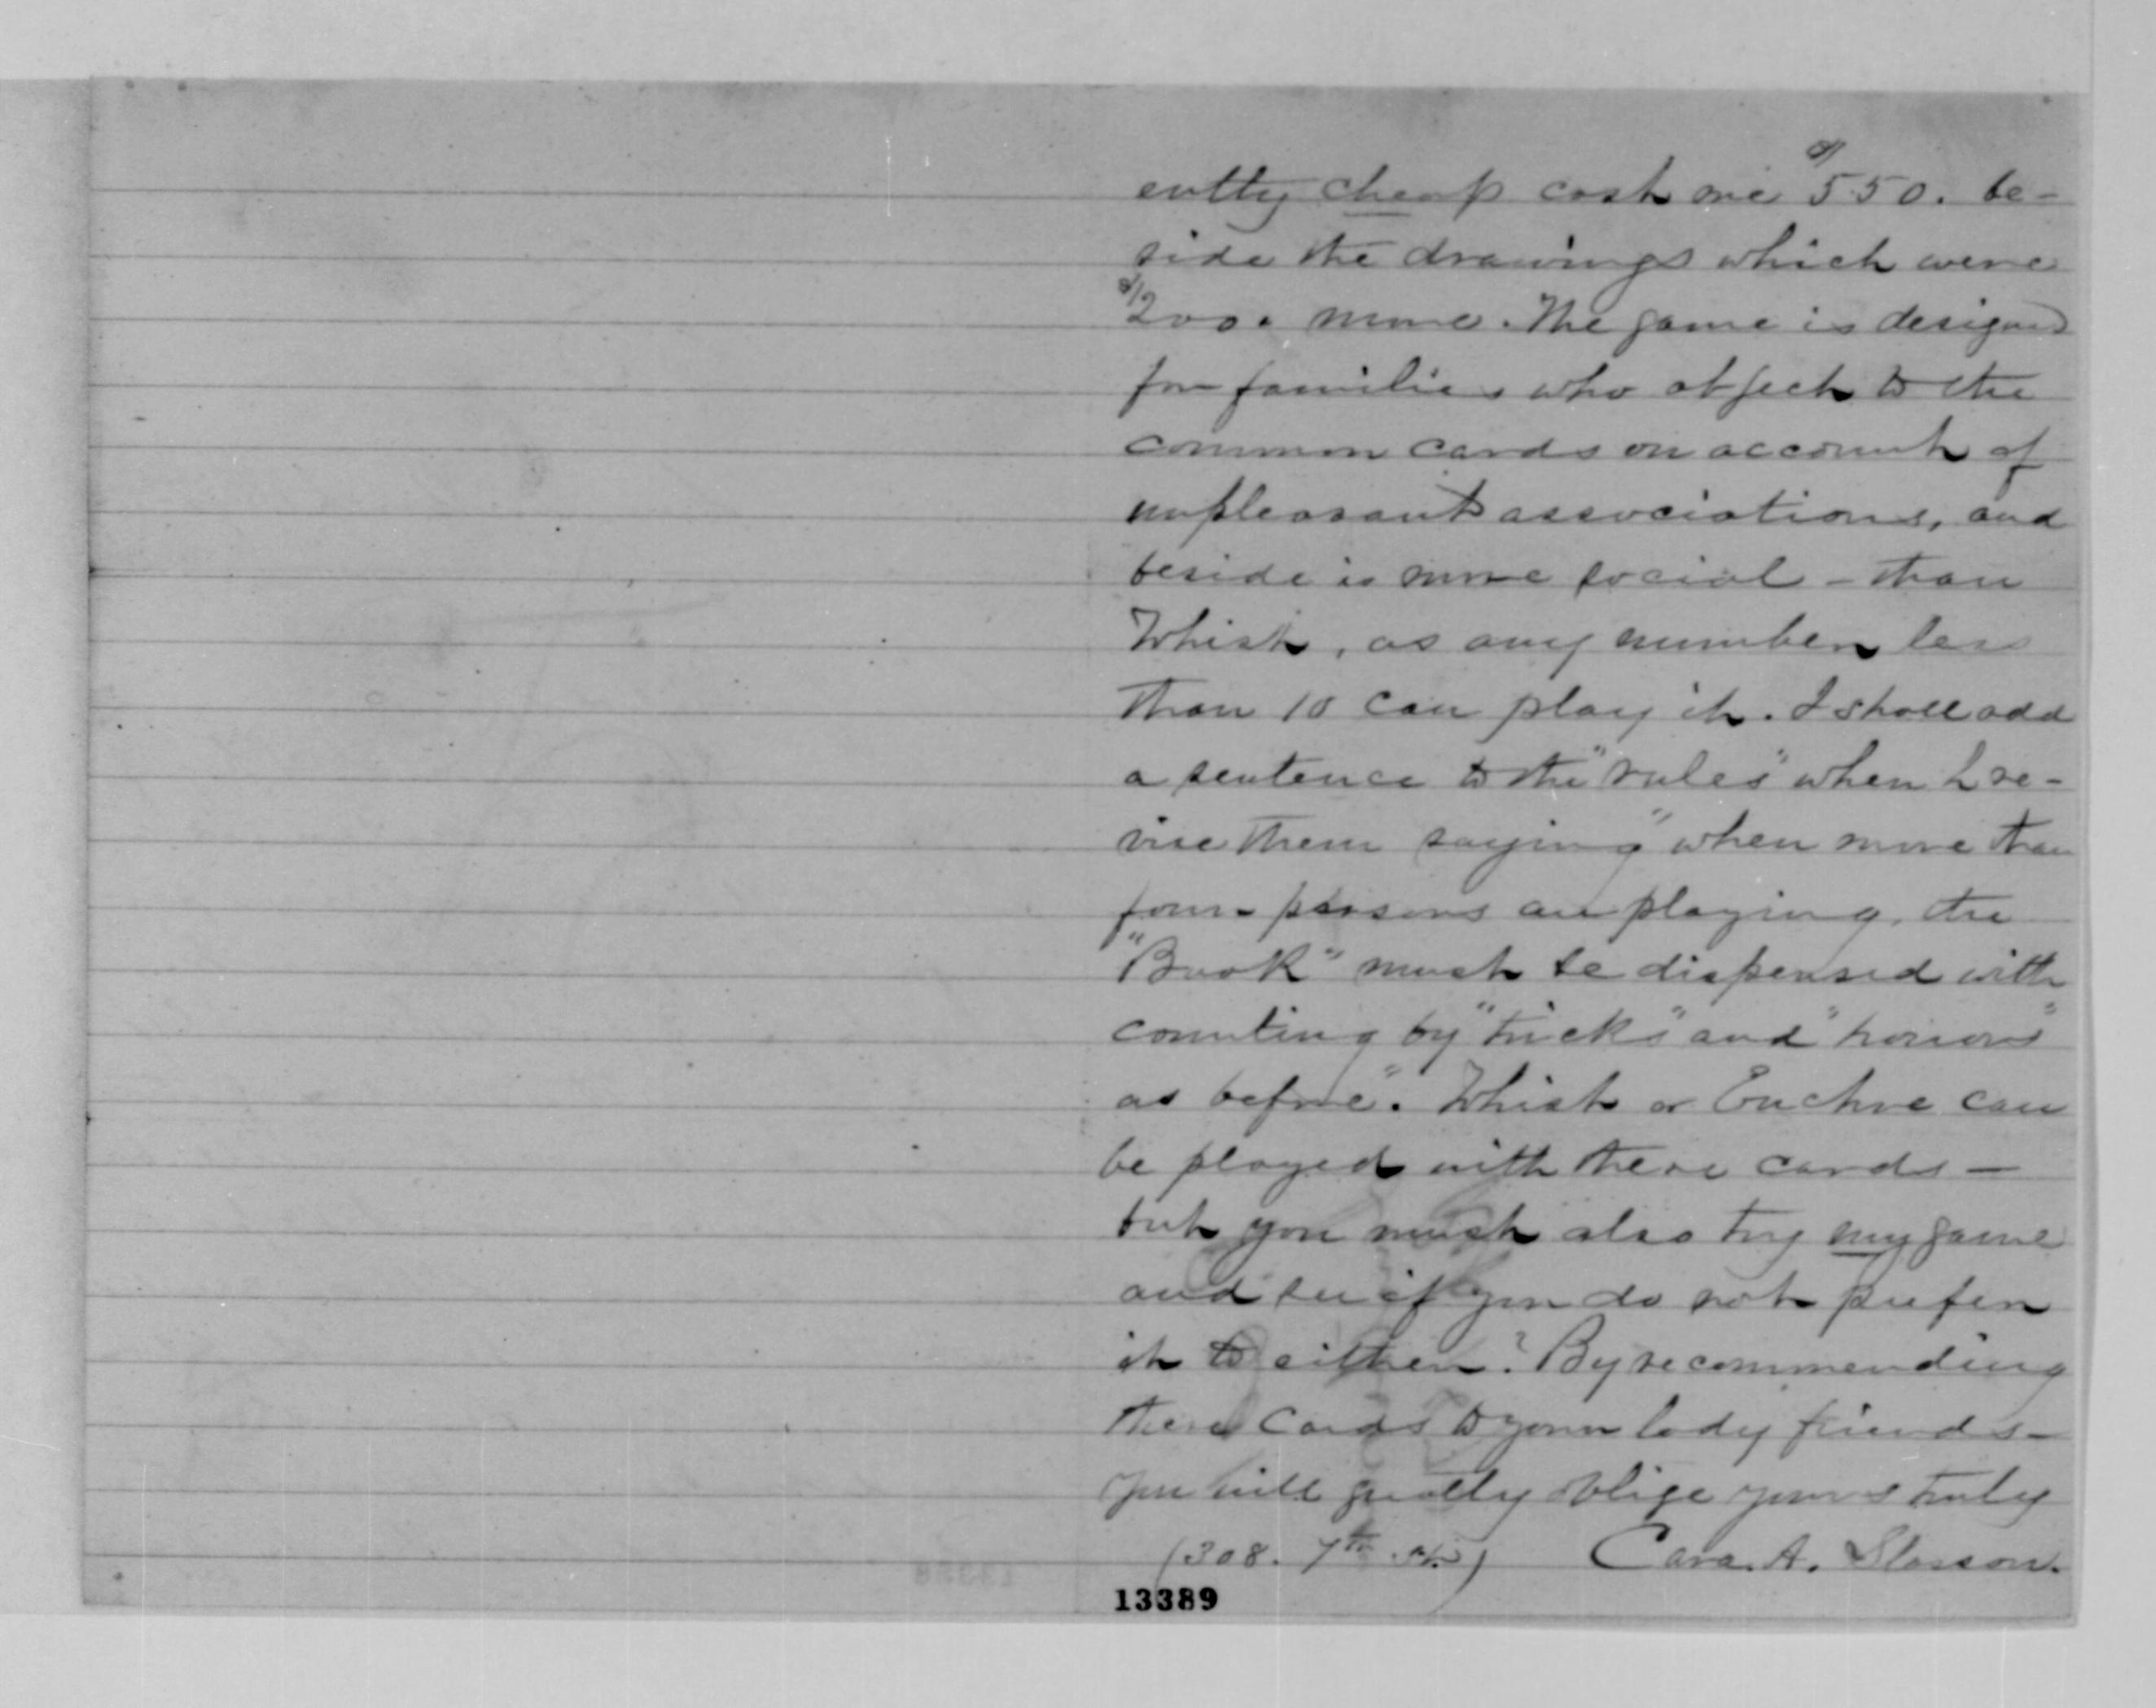 ently cheap cost me $550. be-
side the drawings which were
$200. more. The game is designed
for families who object to the
common cards on account of
unpleasant associations, and
beside is more social - than
Whist, as any number less
than 10 can play it. I shall add
a sentence to the "rules" when I re-
vise them saying "when more than
four persons are playing, the
"Book" must be dispensed with
counting by "tricks" and "honors"
as before". Whist or Euchre can
be played with these cards —
but you must also try my game
and see if you do not prefer
it to either? By recommending
these cards to your lady friends -
you will greatly oblige yours truly
(308. 7th St.) Cara. A. Slosson.
13389